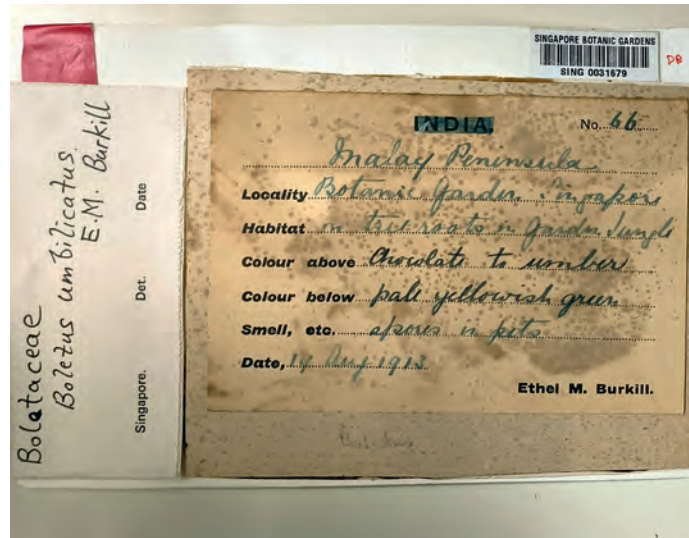 SINGAPORE BOTANIC GARDENS
SING 0031679
DB
Boletaceae
Boletus umbilicatus
E.M. Burkill
Singapore. Det. Date
INDIA.
No. 66
Malay Peninsula
Locality Botanic Garden Singapore
Habitat on tree roots in Garden Jungle
Colour above Chocolate to umber
Colour below pale yellowish green
Smell, etc. spores in pits
Date, 14 Aug 1913
Ethel M. Burkill.